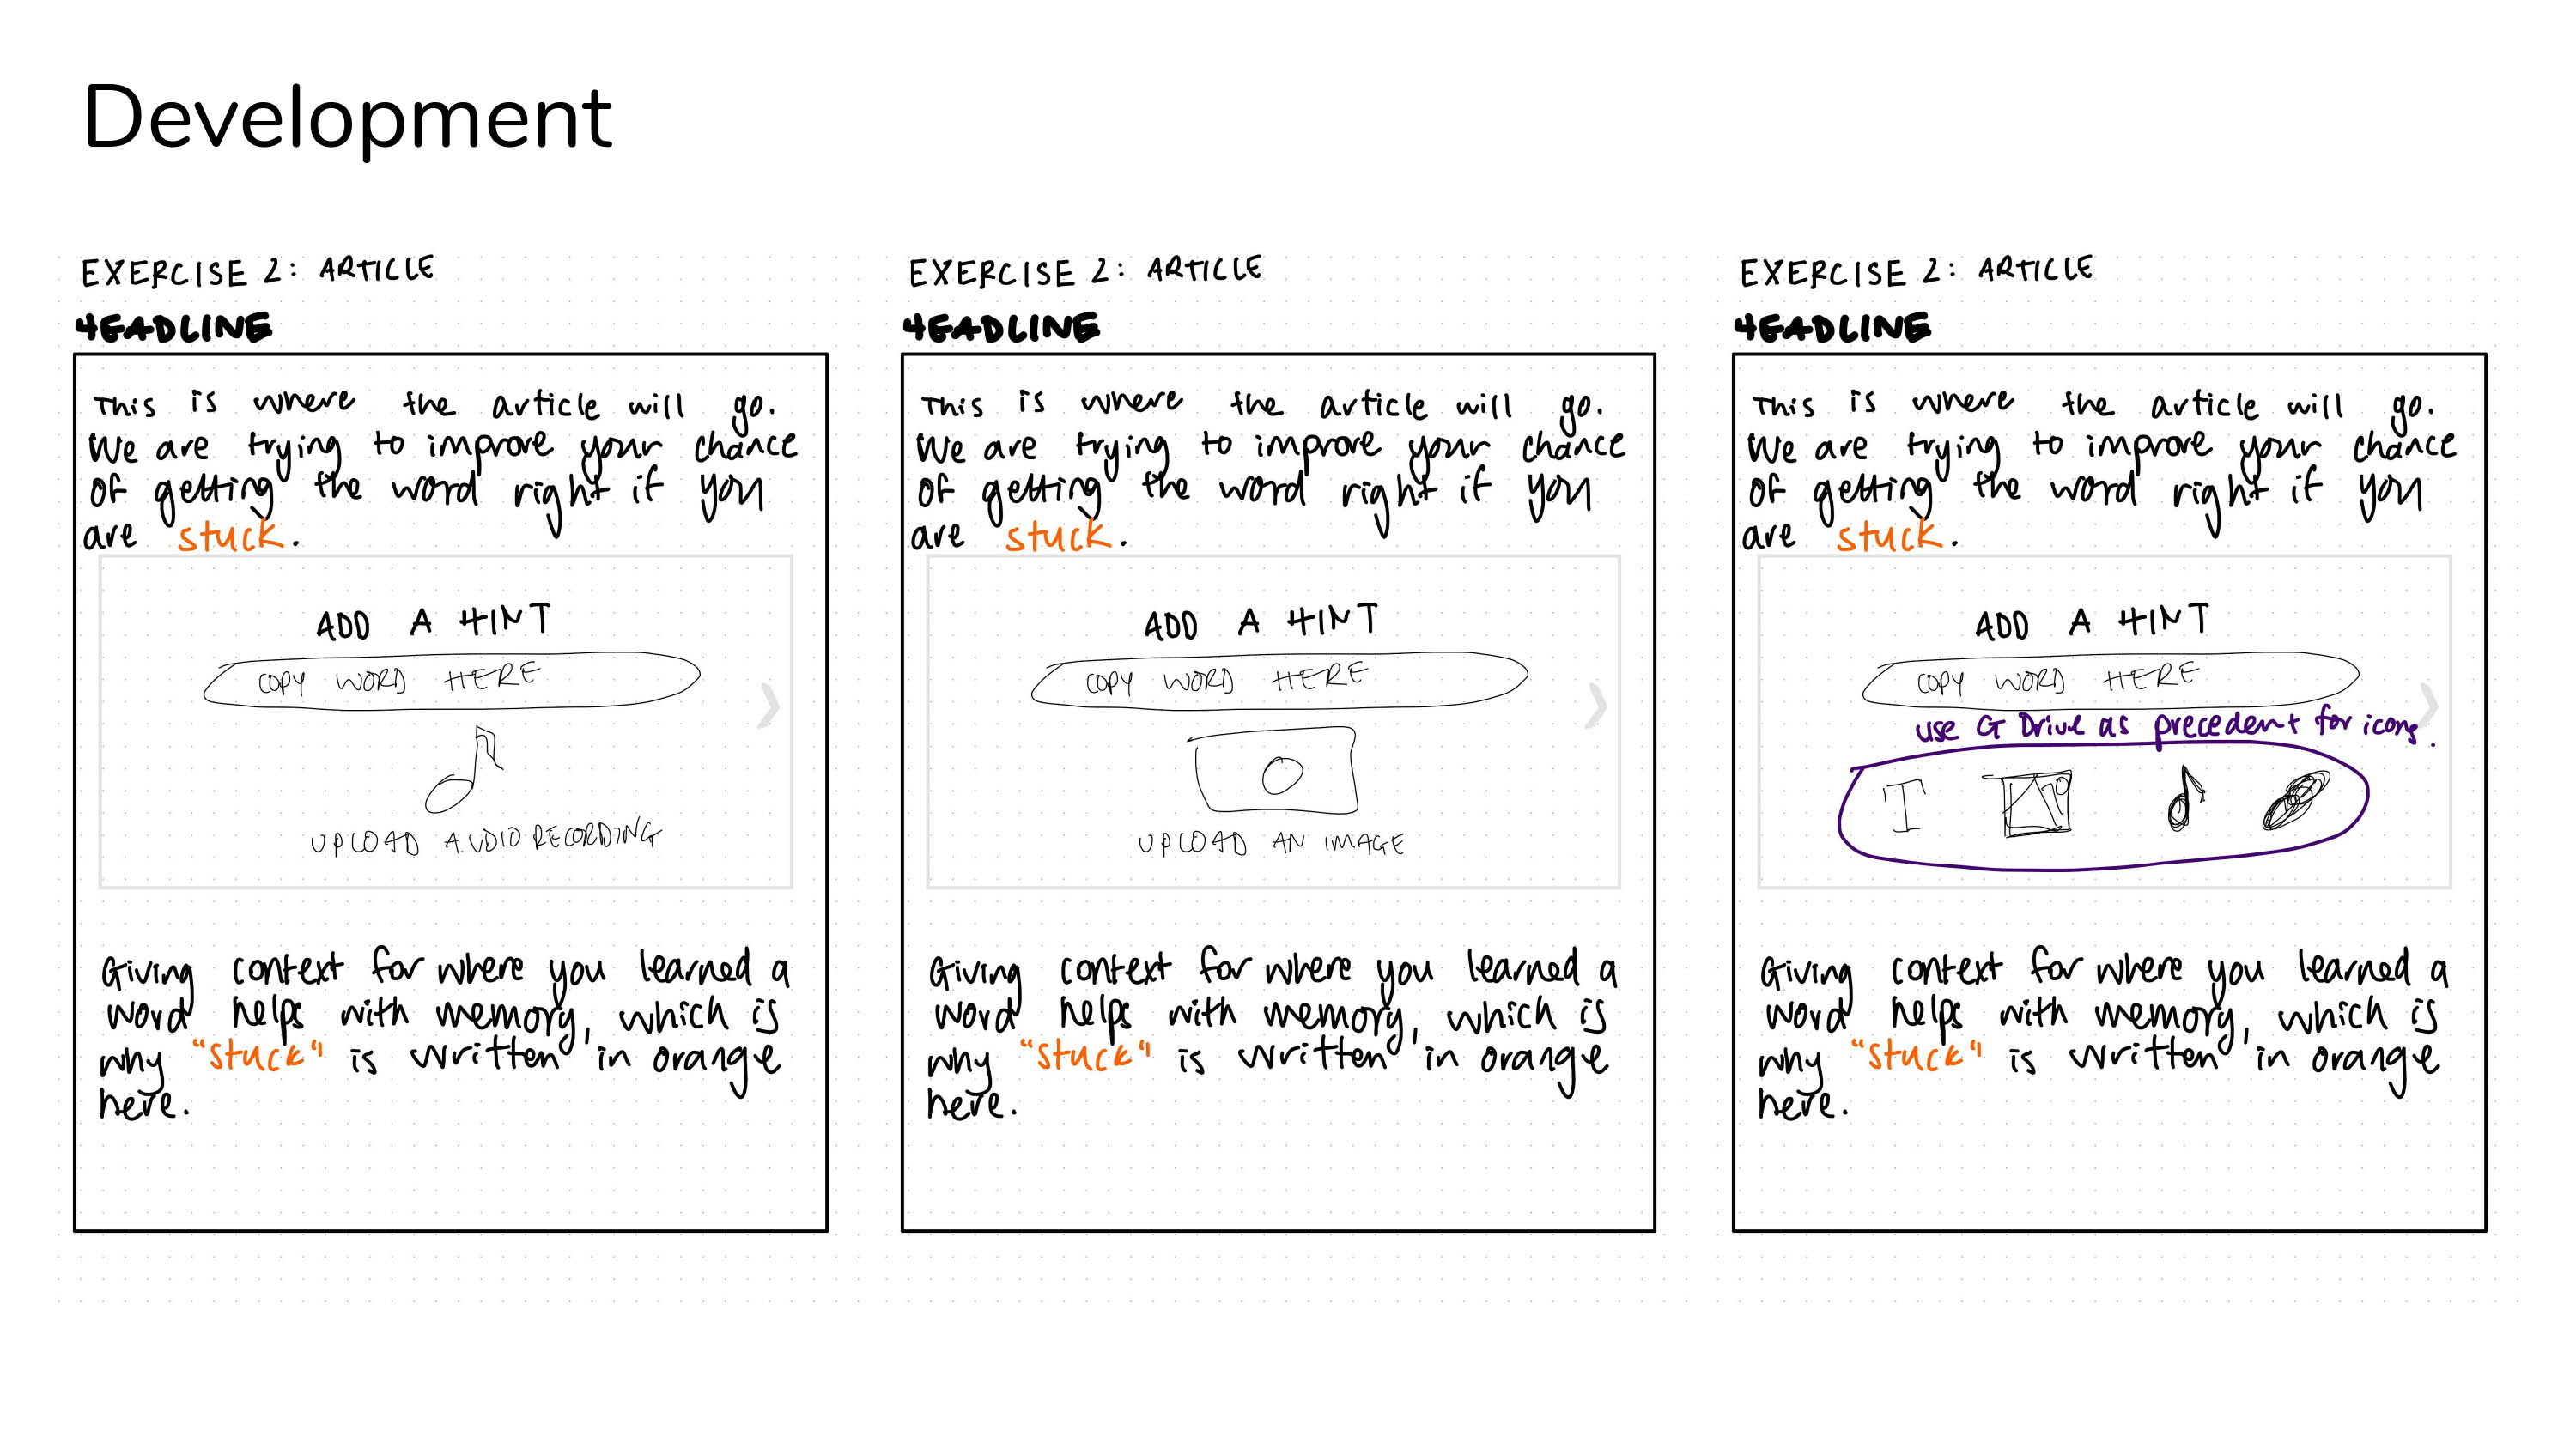 Development
EXERCISE 2: ARTICLE
HEADLINE
This is where the article will go.
We are trying to improve your chance
of getting the word right if you
are stuck.
ADD A HINT
COPY WORD HERE
UPLOAD AUDIO RECORDING
Giving context for where you learned a
word helps with memory, which is
why "stuck" is written in orange
here.
EXERCISE 2: ARTICLE
HEADLINE
This is where the article will go.
We are trying to improve your chance
of getting the word right if you
are stuck.
ADD A HINT
COPY WORD HERE
UPLOAD AN IMAGE
Giving context for where you learned a
word helps with memory, which is
why "stuck" is written in orange
here.
EXERCISE 2: ARTICLE
HEADLINE
This is where the article will go.
We are trying to improve your chance
of getting the word right if you
are stuck.
ADD A HINT
COPY WORD HERE
use G Drive as precedent for icons.
T
Giving context for where you learned a
word helps with memory, which is
why "stuck" is written in orange
here.